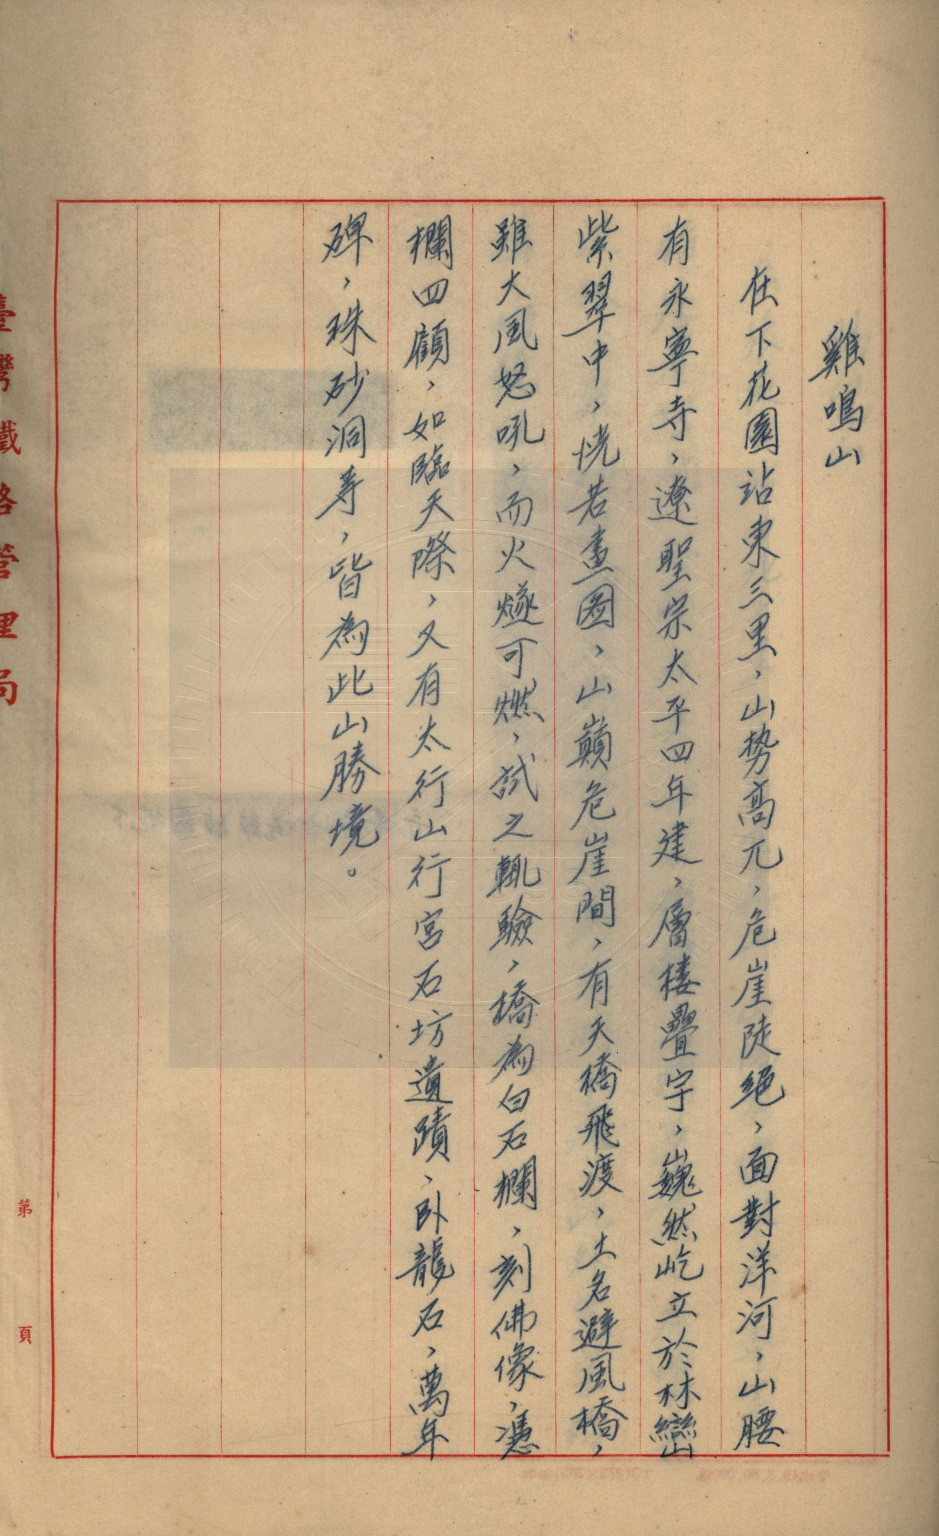 雞鳴山
在下花園站東三里，山勢高兀，危崖陡絕，面對洋河，山腰
有永寧寺，遼聖宗太平四年建，層樓疊宇，巍然屹立於林巒
紫翠中，恍若畫圖，山巔危崖間，有天橋飛渡，土名避風橋，
雖大風怒吼，而火燧可燃，試之輒驗，橋為白石欄，刻佛像，憑
欄四顧，如臨天際，又有太行山行宮石坊遺蹟，臥龍石，萬年
碑，珠砂洞等，皆為此山勝境。
臺灣鐵路管理局
第　頁